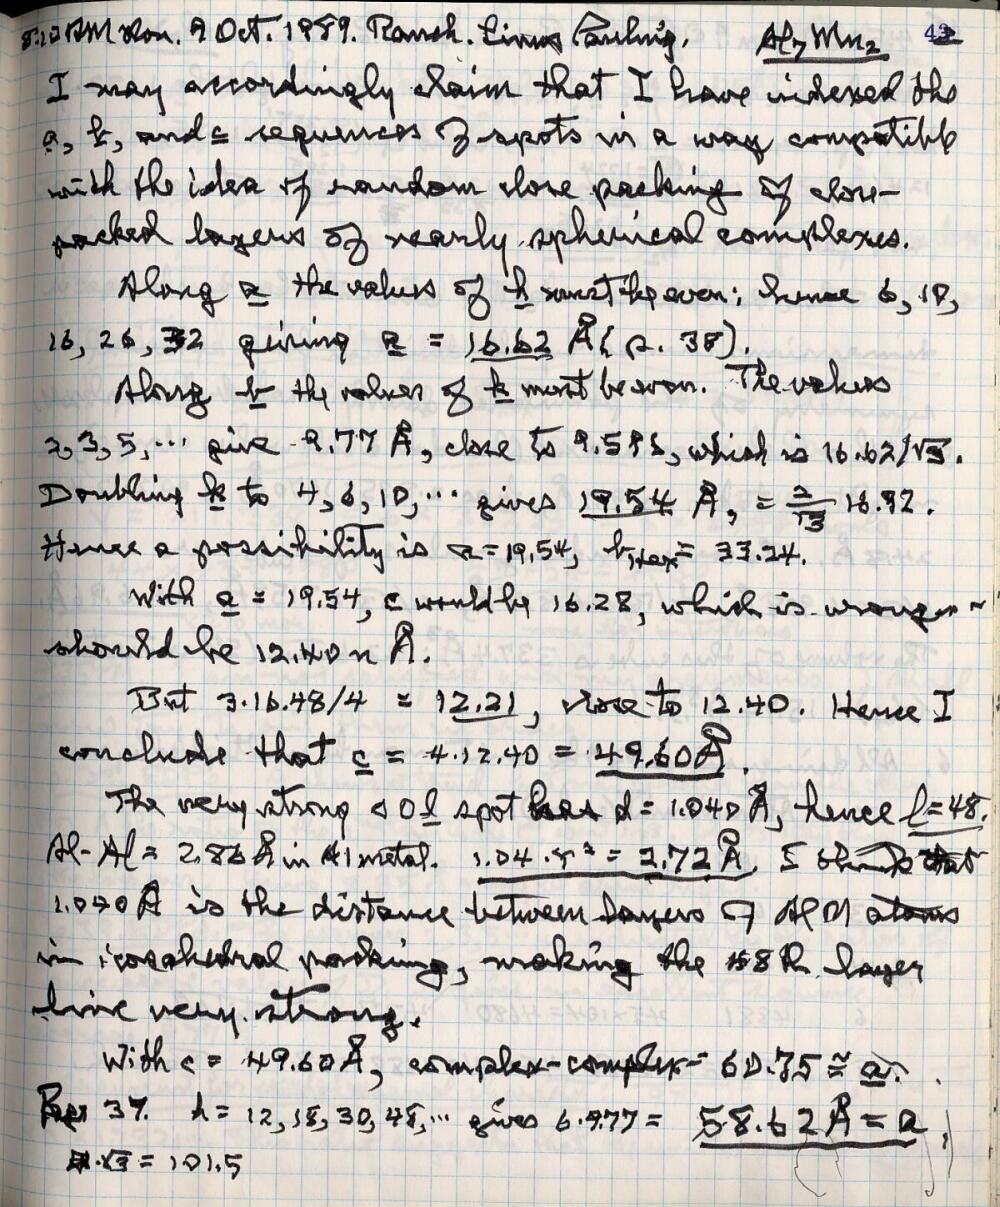 8:20 AM Mon. 9 Oct. 1989. Ranch. Linus Pauling. Al₇Mn₂ 42
I may accordingly claim that I have indexed the
a, b, and c sequences of spots in a way compatible
with the idea of random close packing of close-
packed layers of nearly spherical complexes.
Along a the values of h must be even; hence 6, 10,
16, 26, 32 giving a = 16.62 Å (p. 38).
Along b the values of k must be even. The values
2, 3, 5, ··· give 9.77 Å, close to 9.595, which is 16.62/√3.
Doubling k to 4, 6, 10, ··· gives 19.54 Å, = 2/√3 16.92.
Hence a possibility is a = 19.54, = 33.24.
With a = 19.54, c would be 16.28, which is wrong ~
should be 12.40 n Å.
But 3·16.48/4 = 12.21, close to 12.40. Hence I
conclude that c = 4·12.40 = 49.60 Å.
The very strong 0 0 l spot has d = 1.040 Å, hence l = 48.
Al-Al = 2.86 Å in Al metal. = 2.72 Å. I think that
1.040 Å is the distance between layers of Al M atoms
in icosahedral packing, making the 48th layer
line very strong.
With c = 49.60 Å, complex-complex = 60.75 ≅ a.
Page 37. h = 12, 18, 30, 48, ··· gives 6·9.77 = 58.62 Å = a.
·√3 = 101.5